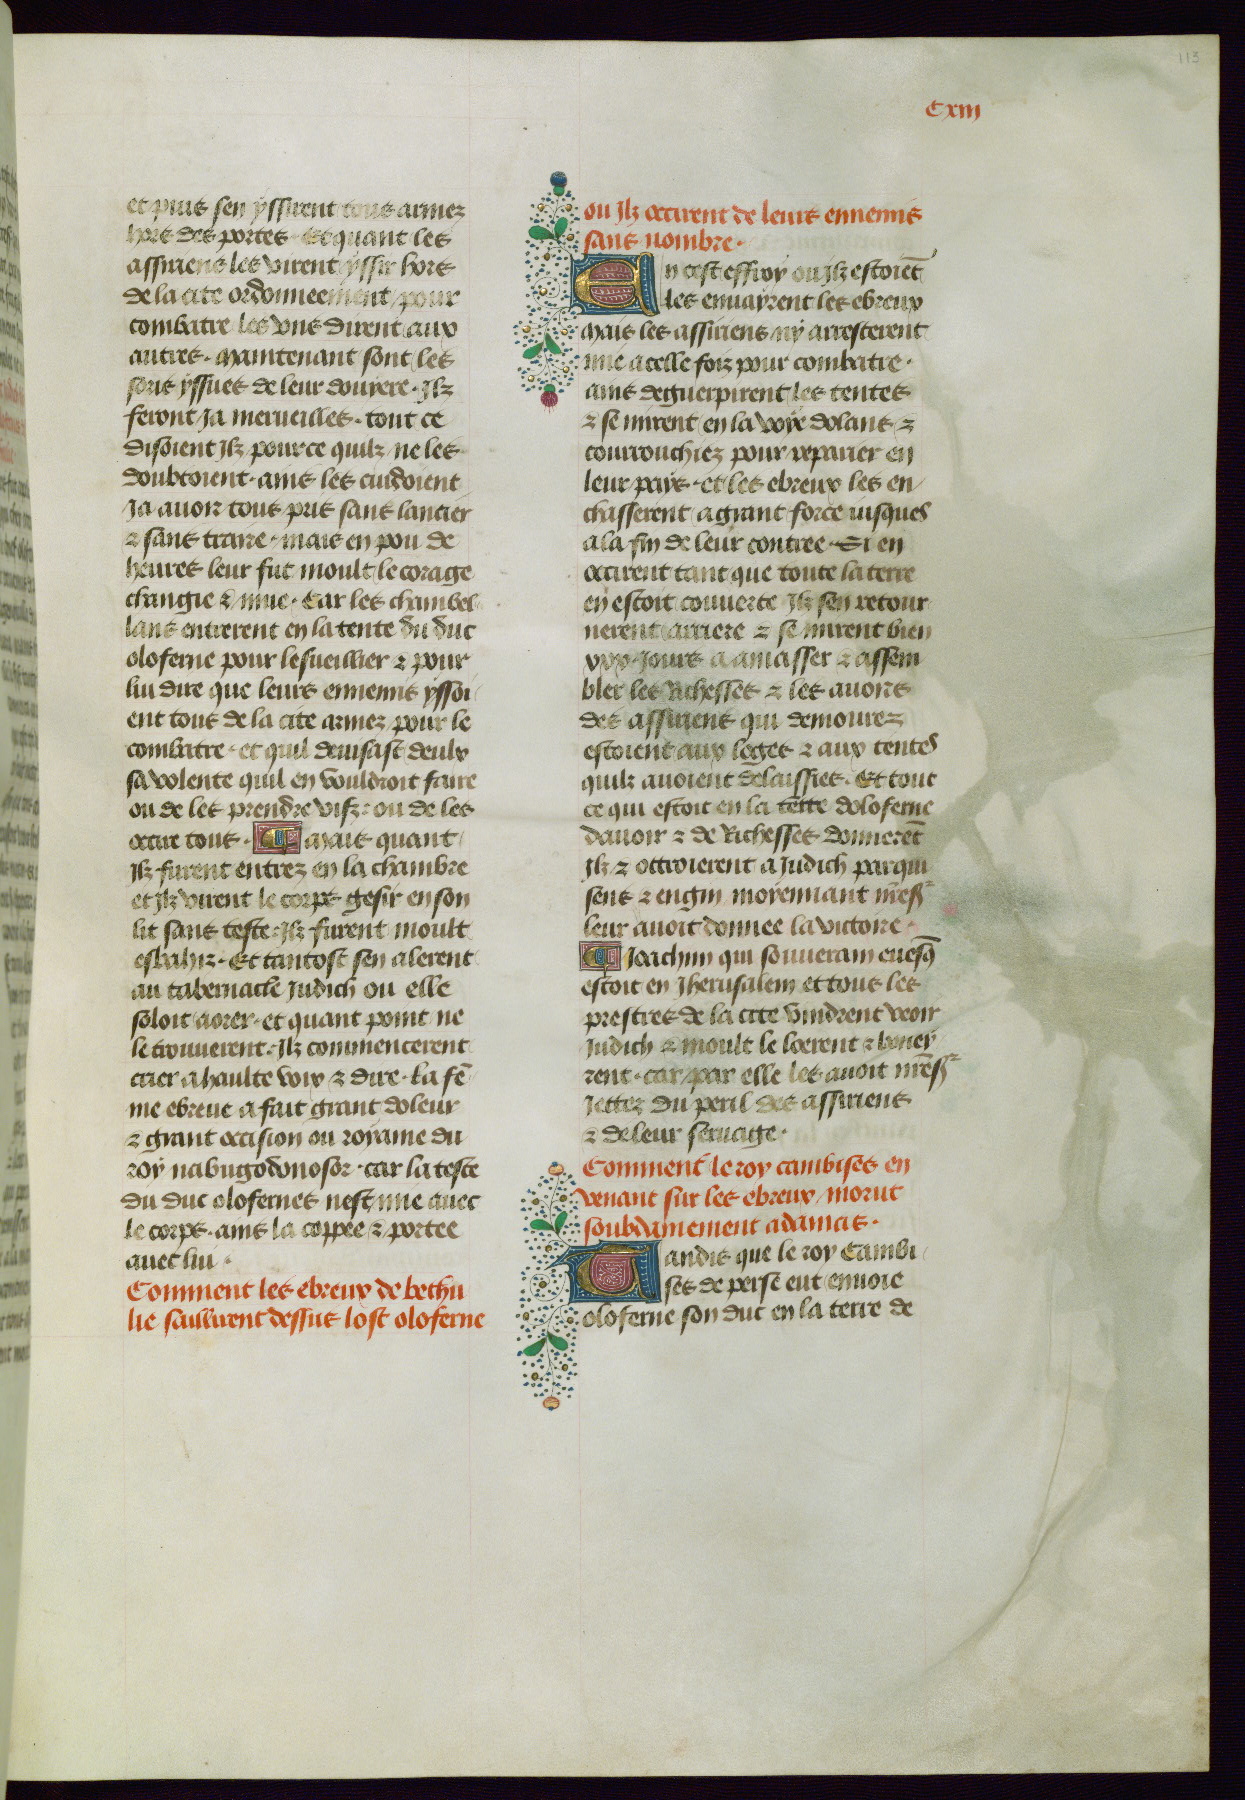 113
Cxiij
et puis sen yssirent tous armez
hors des portes. Et quant les
assiriens les virent yssir hors
de la cite ordonneement pour
combatre les vns dirent aux
autres. maintenant sont les
soris yssues de leur douyere. Ilz
feront ja merueilles. tout ce
disoient ilz pource quilz ne les
doubtoient. ains les cuidoient
Ja auoir tous pris sans lancier
⁊ sans traire. mais en pou de
heures leur fut moult le corage
changie ⁊ mue. Car les chambel
lans entrerent en la tente du duc
oloferne pour lesueillier ⁊ pour
lui dire que leurs ennemis yssoi
ent tous de la cite armez pour le
combatre. et quil deuisast deulx
sa volente quil en vouldroit faire
ou de les prendre vifz. ou de les
occire tous. Mais quant
Ilz furent entrez en la chambre
et ilz virent le corps gesir en son
lit sans teste. Ilz furent moult
esbahiz. Et tantost sen alerent
au tabernacle Judich ou elle
soloit aorer. et quant point ne
le trouuerent. Ilz commencerent
crier a haulte voix ⁊ dire. la fē
me ebreue a fait grant doleur
⁊ grant occision ou royame du
roy nabugodonosor. car la teste
du duc olofernes nest mie auec
le corps. ains la coppee ⁊ portee
auec lui.
Comment les ebreux de bethu
lie saillirent dessus lost oloferne
ou ilz occirent de leurs ennemis
sans nombre.
En cest effroy ou ilz estoiēt
les enuayrent les ebreux
Mais les assiriens ny arresterent
mie a celle foiz pour combatre.
ains deguerpirent les tentes
⁊ se mirent en la voye dolans ⁊
courrouchiez pour repairier en
leur pays. et les ebreux les en
chasserent a grant force iusques
a la fin de leur contree. Si en
occirent tant que toute la terre
en estoit couuerte Ilz sen retour
nerent arriere ⁊ se mirent bien
xxx. jours a amasser ⁊ assem
bler les Richesses ⁊ les auoirs
des assiriens qui demourez
estoient aux loges ⁊ aux tentes
quilz auoient delaissies. Et tout
ce qui estoit en la tente doloferne
dauoir ⁊ de Richesses donnerēt
Ilz ⁊ ottroierent a Judich par qui
sens ⁊ engin moyennant nr̄es
leur auoit donnee la victoire.
Joachim qui souuerain euesq̄
estoit en Jherusalem et tous les
prestres de la cite vindrent veoir
Judich ⁊ moult le loerent ⁊ beney
rent. car par elle les auoit nr̄es
Jettez du peril des assiriens
⁊ de leur seruage.
Comment le roy cambises en
venant sur les ebreux morut
soubdainement a damas.
Tandis que le roy Cambi
ses de perse eut enuoie
oloferne son duc en la terre de